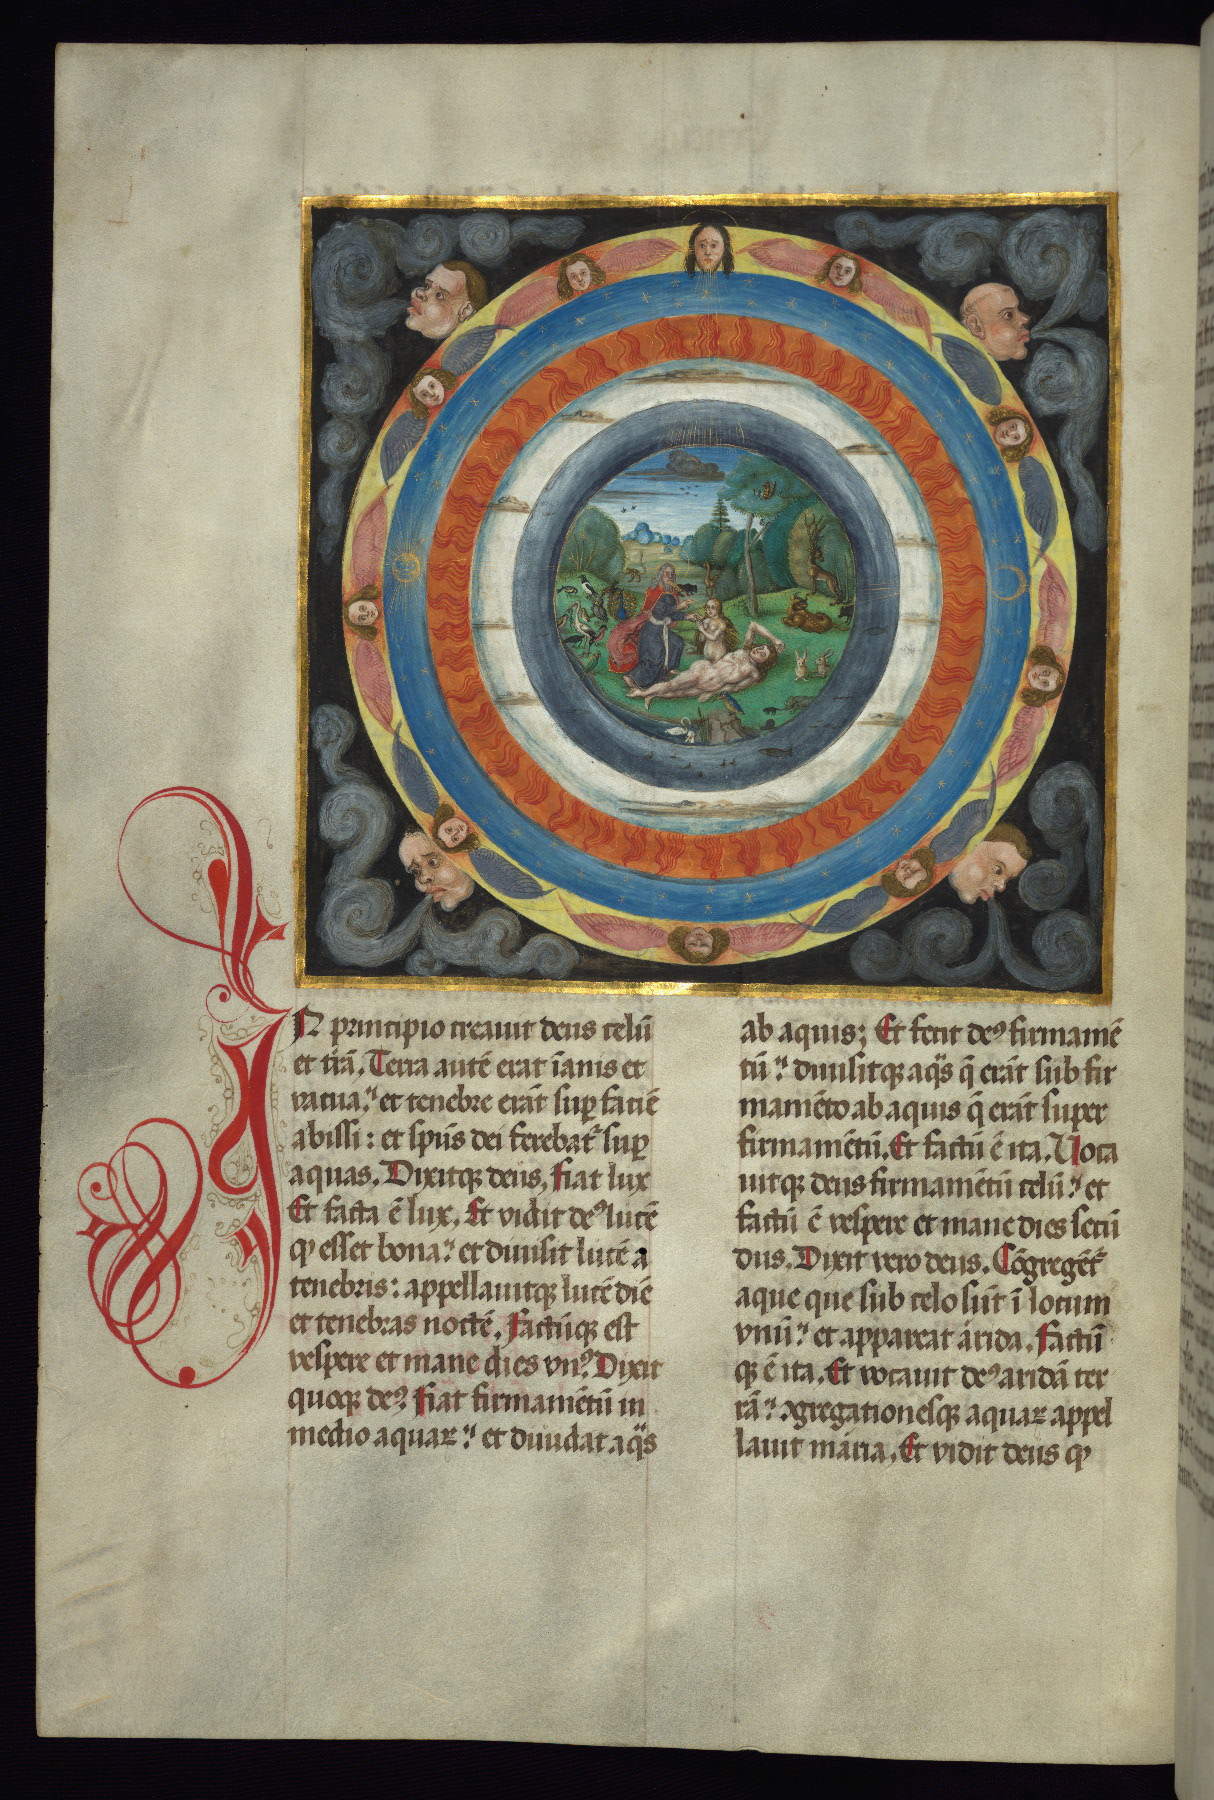 IN principio creauit deus celū
et t̄rā. Terra autē erat īanis et
vacua: et tenebre erāt sup̱ faciē
abissi: et sp̄us dei ferebat᷑ sup̱
aquas. Dixitqꝫ deus. Fiat lux
Et facta ē lux. Et vidit deꝰ lucē
ꝙ esset bona: et diuisit lucē a
tenebris: appellauitqꝫ lucē diē
et tenebras noctē. Factūqꝫ est
vespere et mane dies vnꝰ. Dixit
quoqꝫ deꝰ Fiat firmamētū in
medio aquaꝝ: et diuidat aq̄s
ab aquis; Et fecit deꝰ firmamē
tū: diuisitqꝫ aq̄s q̄ erāt sub fir
mamēto ab aquis q̄ erāt super
firmamētū. Et factū ē ita. Uoca
uitqꝫ deus firmamētū celū: et
factū ē vespere et mane dies secū
dus. Dixit vero deus. Cōgregēt᷑
aque que sub celo sūt ī locum
vnū: et appareat arida. Factū
qꝫ ē ita. Et vocauit deꝰ aridā ter
rā: ꝯgregationesqꝫ aquaꝝ appel
lauit maria. Et vidit deus ꝙ